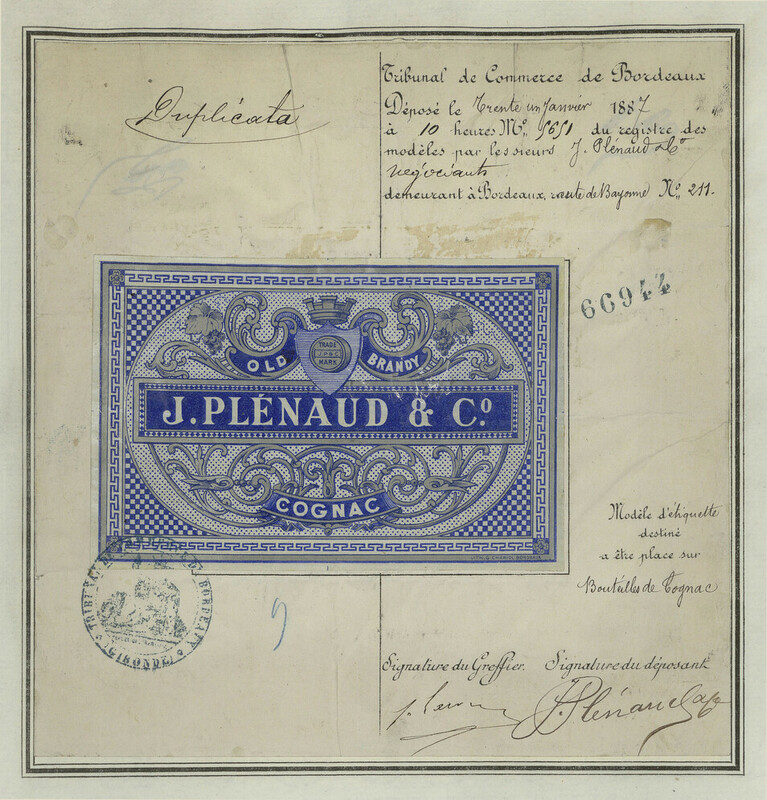 Duplicata
Tribunal de Commerce de Bordeaux
Déposé le Trente un Janvier 1887
à 10 heures N° 5651 du registre des
modèles par les sieurs J. Plénaud & Co
négociants
demeurant à Bordeaux, route de Bayonne N° 211.
66944
TRADE
J.P & C
MARK
OLD BRANDY
J. PLÉNAUD & Co
COGNAC
Modèle d'étiquette
destiné
a être place sur
Bouteilles de Cognac
TRIBUNAL DE COMMERCE DE BORDEAUX
(GIRONDE)
9
Signature du Greffier. Signature du déposant
J. Plénaud